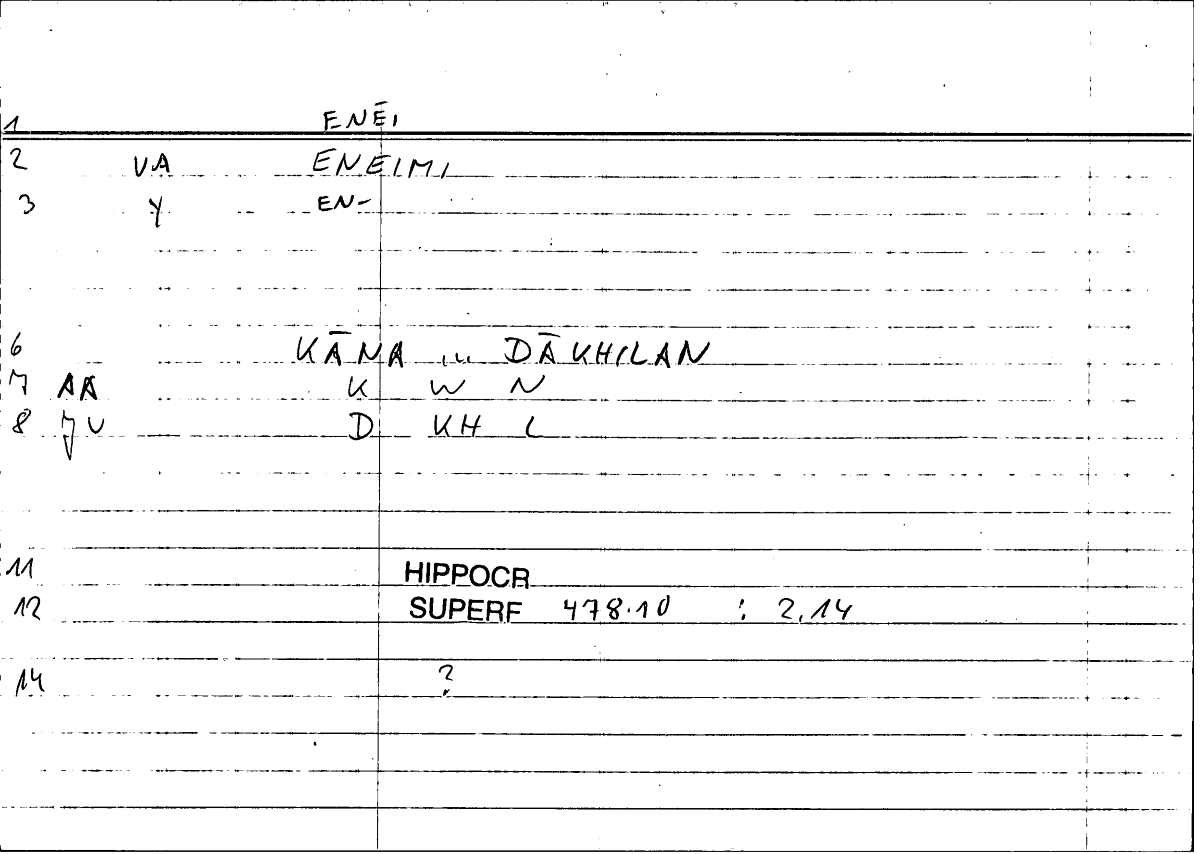 1 ENĒI
2 VA ENEIMI
3 Y EN-
6 KĀNA ... DĀKHILAN
7 AA K W N
8 JV D KH L
11 HIPPOCR
12 SUPERF 478.10 : 2.14
14 ?